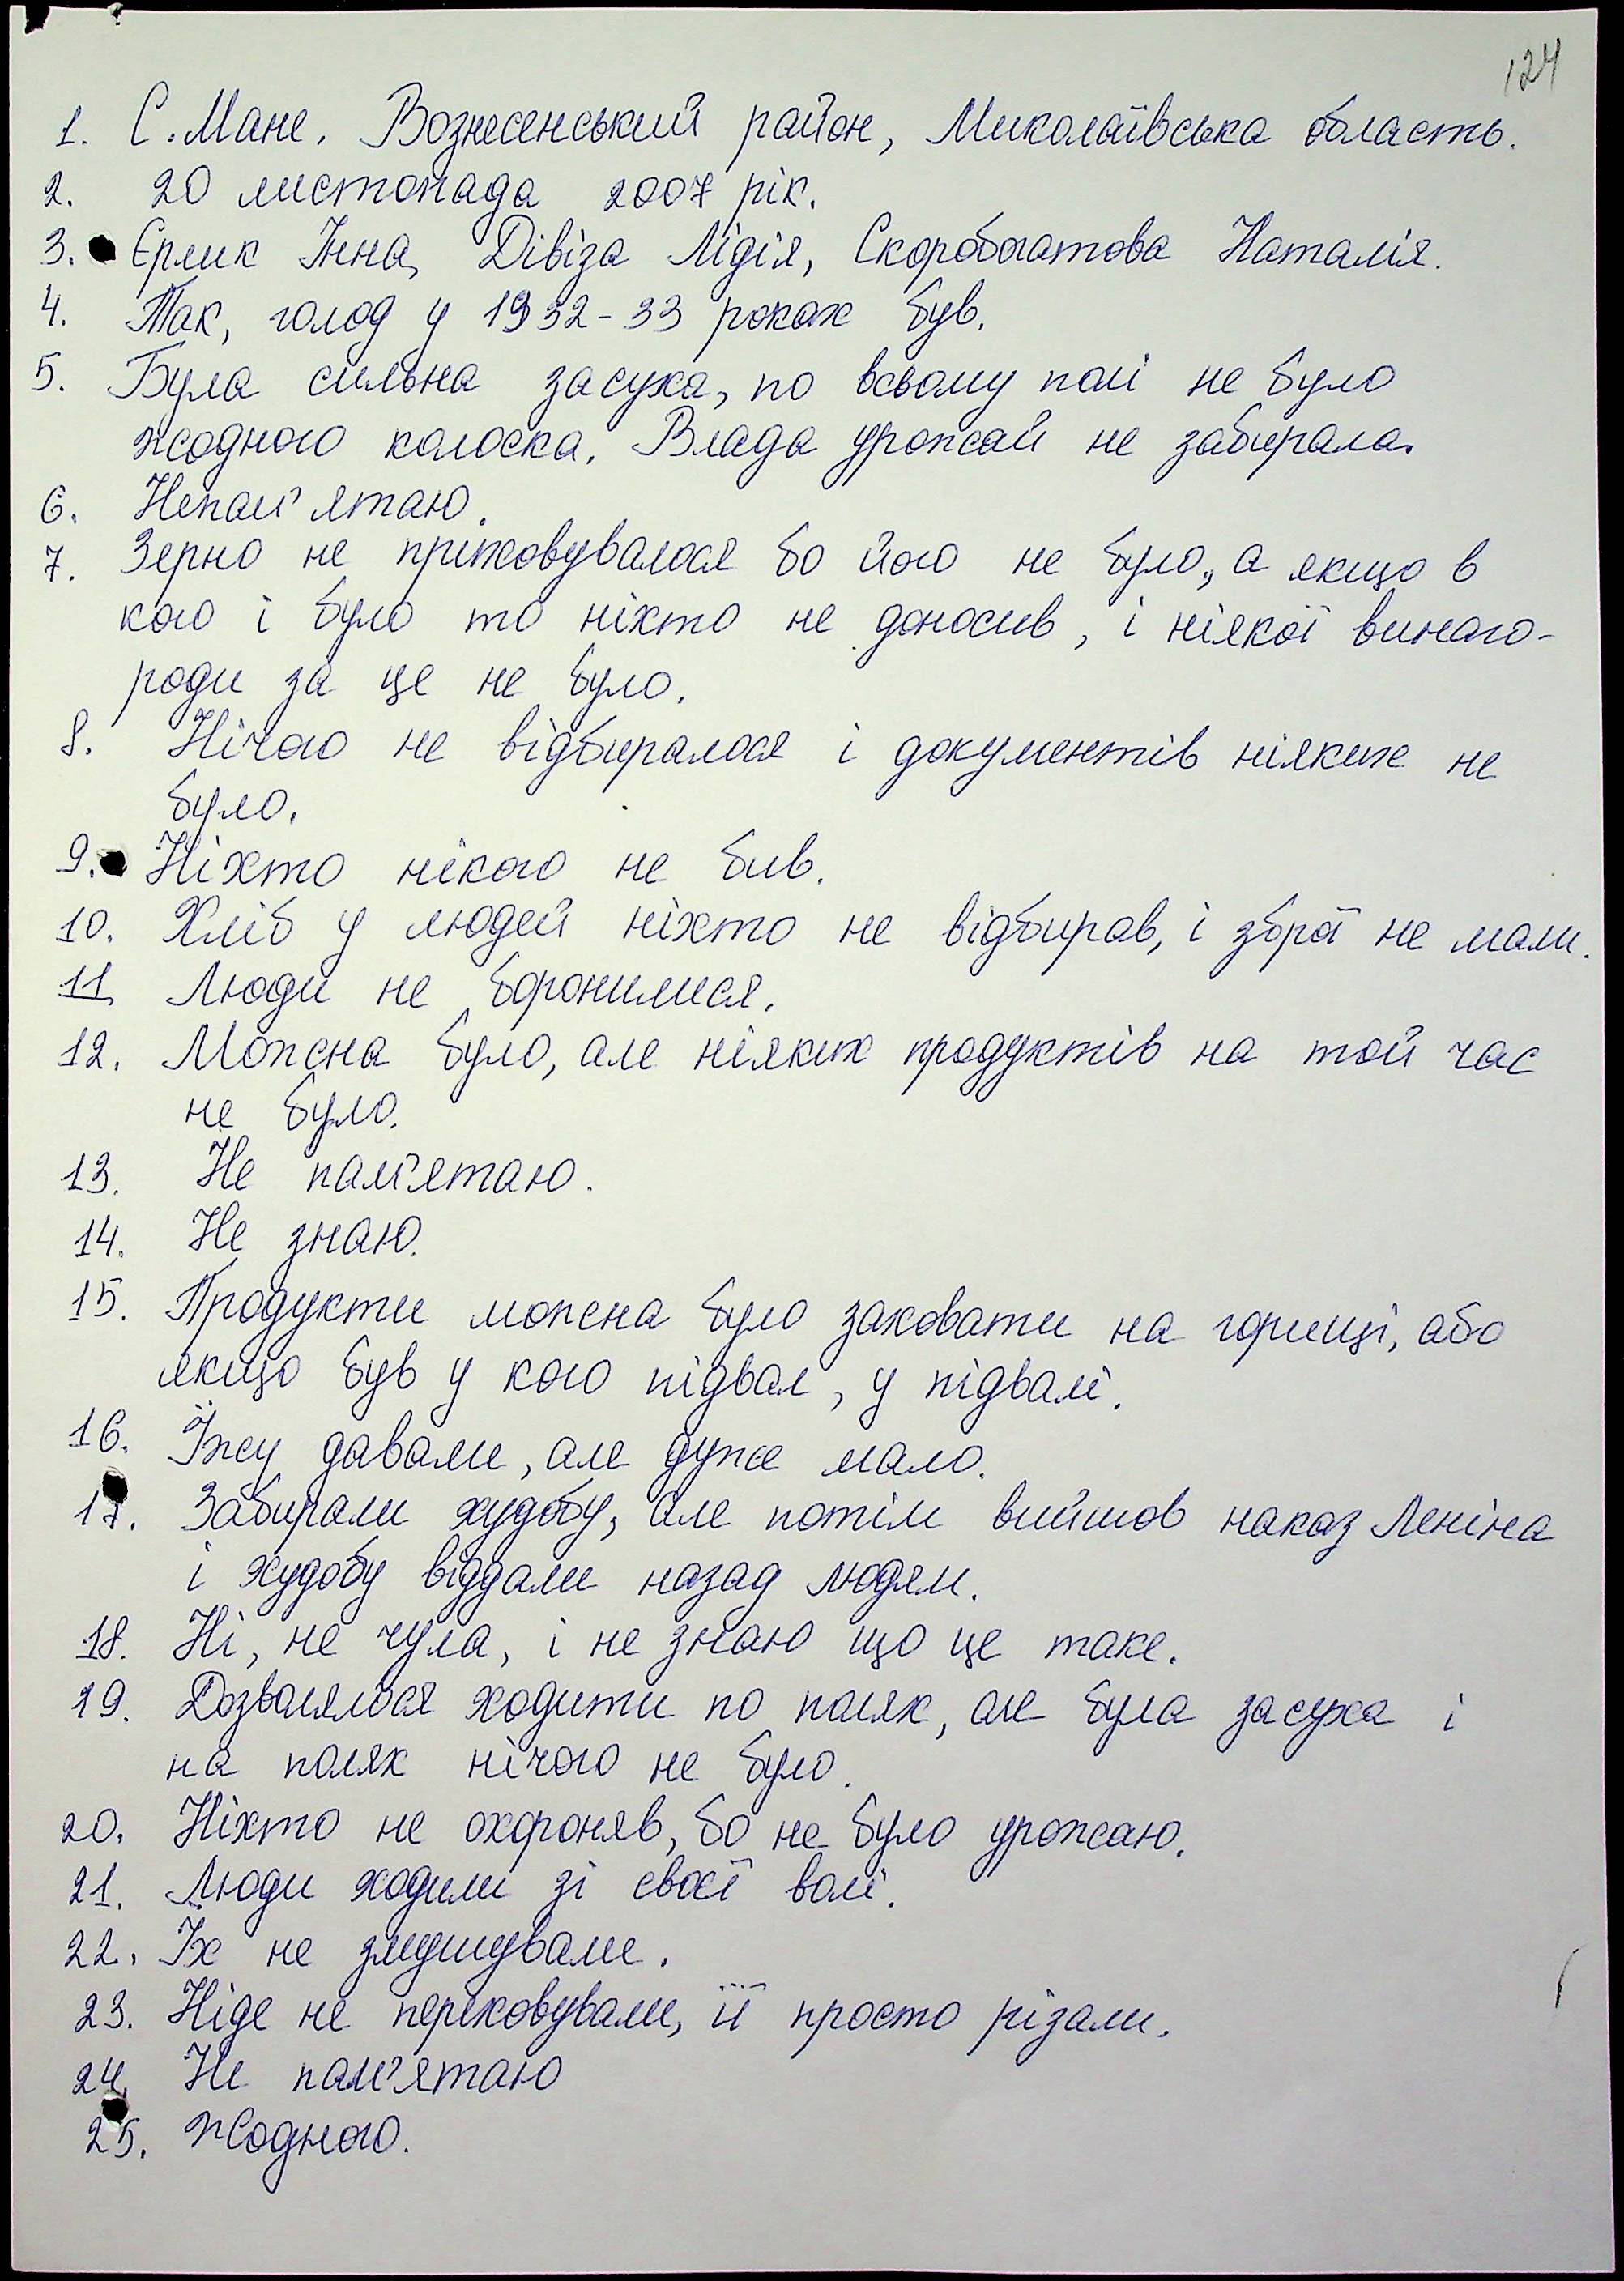 124
1. С. Мане. Вознесенський район, Миколаївська область.
2. 20 листопада 2007 рік.
3. Єрлик Інна, Дівіза Лідія, Скоробогатова Наталія.
4. Так, голод у 1932-33 роках був.
5. Була сильна засуха, по всьому полі не було
жодного колоска. Влада урожай не забирала.
6. Непам'ятаю.
7. Зерно не приховувалося бо його не було, а якщо в
кого і було то ніхто не доносив, і ніякої винаго-
роди за це не було.
8. Нічого не відбиралося і документів ніяких не
було.
9. Ніхто нікого не бив.
10. Хліб у людей ніхто не відбирав, і зброї не мали.
11. Люди не боронилися.
12. Можна було, але ніяких продуктів на той час
не було.
13. Не пам'ятаю.
14. Не знаю.
15. Продукти можна було заховати на горищі, або
якщо був у кого підвал, у підвалі.
16. Їжу давали, але дуже мало.
17. Забирали худобу, але потім вийшов наказ Леніна
і худобу віддали назад людям.
18. Ні, не чула, і не знаю що це таке.
19. Дозволялося ходити по полях, але була засуха і
на полях нічого не було.
20. Ніхто не охороняв, бо не було урожаю.
21. Люди ходили зі своєї волі.
22. Їх не змушували.
23. Ніде не переховували, її просто різали.
24. Не пам'ятаю
25. Жодного.